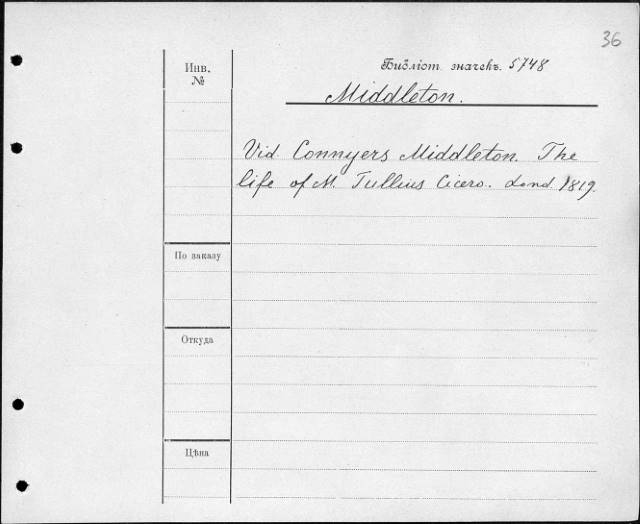 36
Инв.
№
Библіот. значекъ. 5748
Middleton.
Vid. Connyers Middleton. The
life of M. Tullius Cicero. Lond. 1819.
По заказу
Откуда
Цѣна